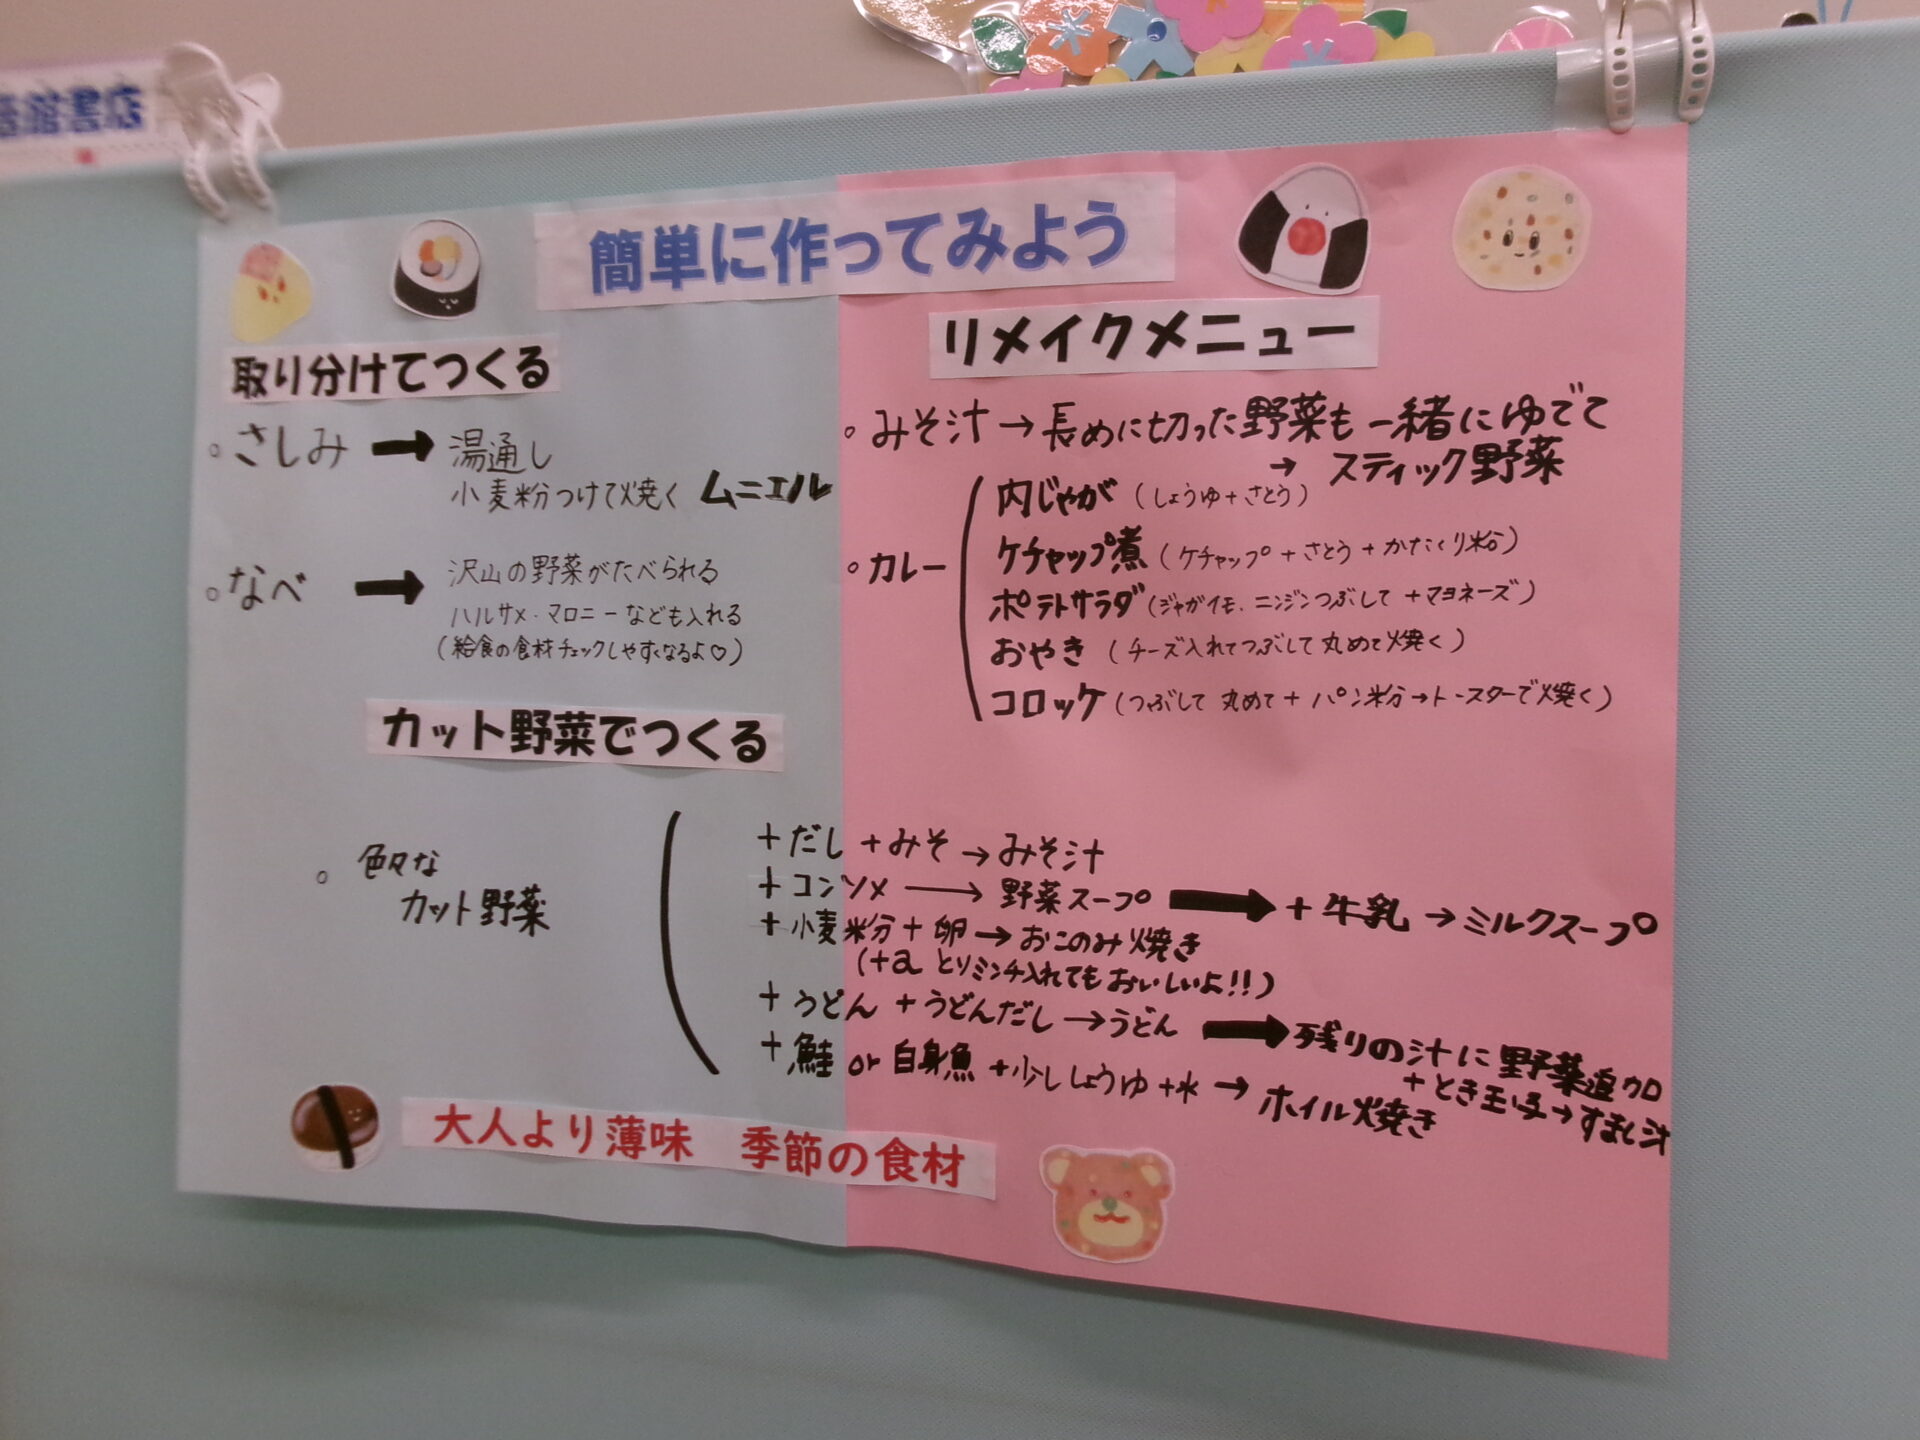 音館書店
簡単に作ってみよう
取り分けてつくる
。さしみ ➡ 湯通し
小麦粉つけて焼く ムニエル
。なべ ➡ 沢山の野菜がたべられる
ハルサメ・マロニーなども入れる
(給食の食材チェックしやすくなるよ♡)
リメイクメニュー
。みそ汁→長めに切った野菜も一緒にゆでて
→ スティック野菜
。カレー
内じゃが (しょうゆ+さとう)
ケチャップ煮 (ケチャップ+さとう+かたくり粉)
ポテトサラダ (ジャガイモ、ニンジンつぶして+マヨネーズ)
おやき (チーズ入れてつぶして丸めて焼く)
コロッケ (つぶして 丸めて+パン粉→トースターで焼く)
カット野菜でつくる
。色々な
カット野菜
+だし+みそ→みそ汁
+コンソメ→野菜スープ ➡ +牛乳→ミルクスープ
+小麦粉+卵→おこのみ焼き
(+a とりミンチ入れてもおいしいよ!!)
+うどん+うどんだし→うどん ➡ 残りの汁に野菜追加
+とき玉子→すまし汁
+鮭 or 白身魚+少ししょうゆ+水→ホイル焼き
大人より薄味 季節の食材